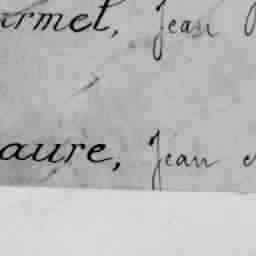 armet, Jean
aure, Jean